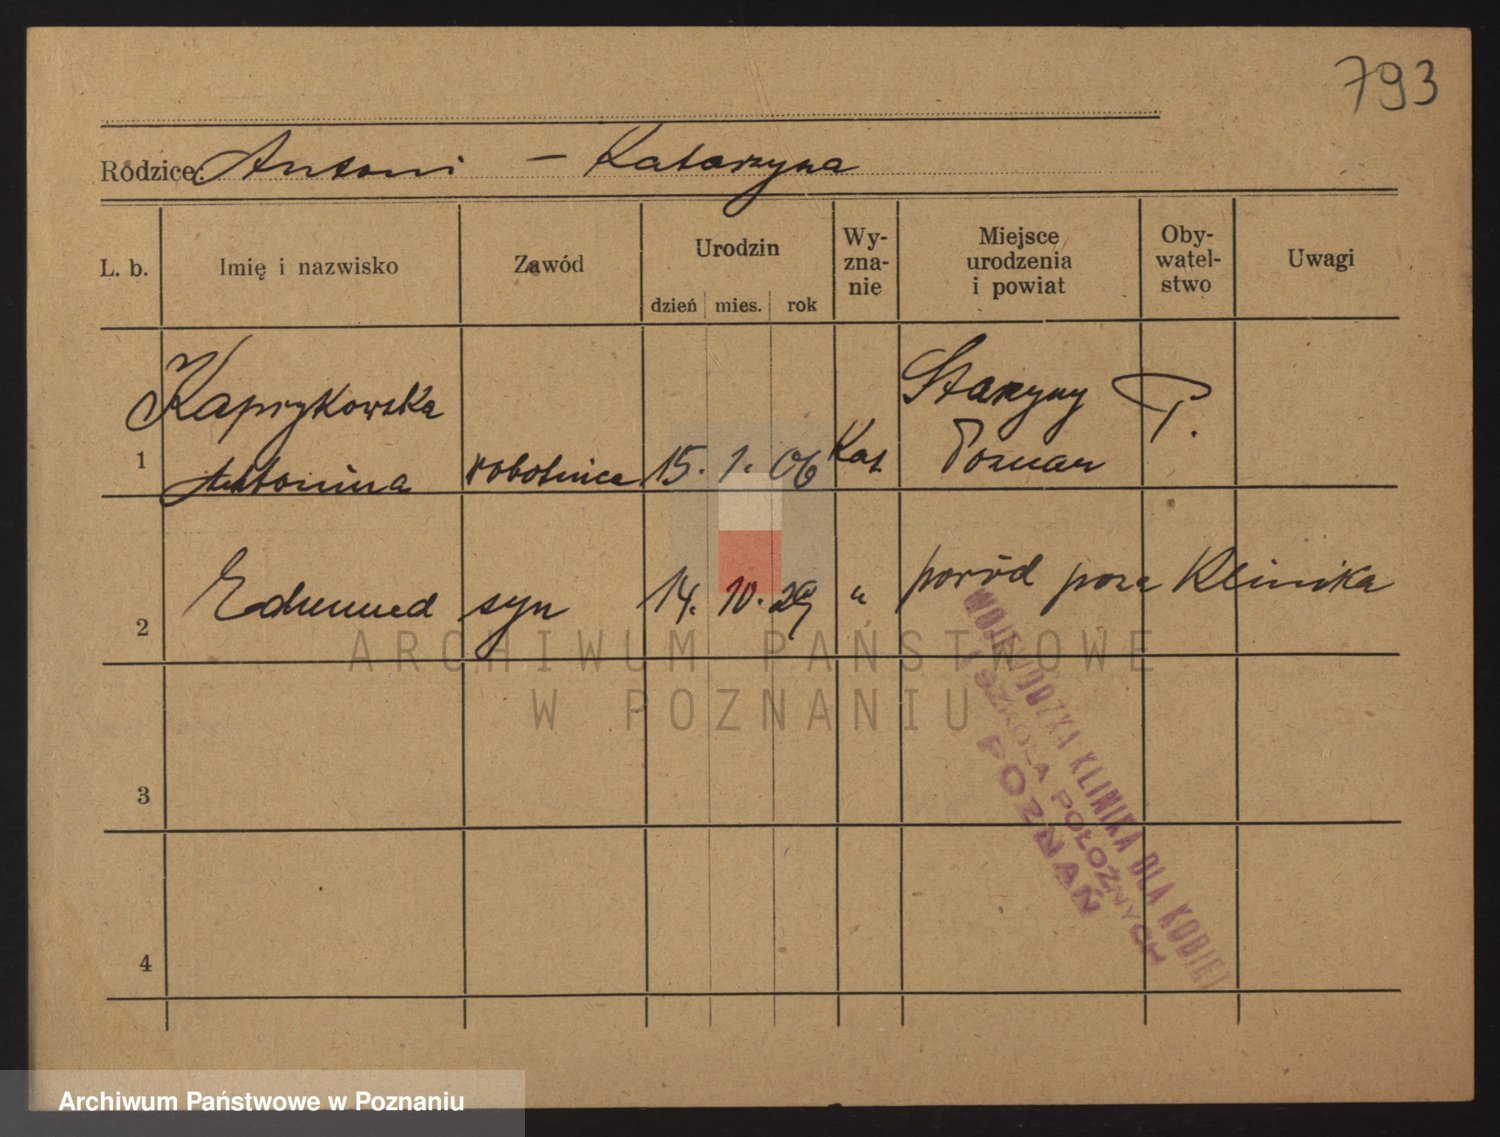 793
Rodzice: Antoni – Katarzyna
L. b. Imię i nazwisko Zawód Urodzin Wy-zna-nie Miejsce urodzenia i powiat Oby-watel-stwo Uwagi
dzień mies. rok
Kaprzykowska
1 Antonina robotnica 15. 1. 06 Kat Poznań P.
2 Edmund syn 14. 10. 29 " poród poza Klinika
3
4
WOJEWÓDZKA KLINIKA DLA KOBIET
I SZKOŁA POŁOŻNYCH
POZNAŃ
ARCHIWUM PAŃSTWOWE
W POZNANIU
Archiwum Państwowe w Poznaniu